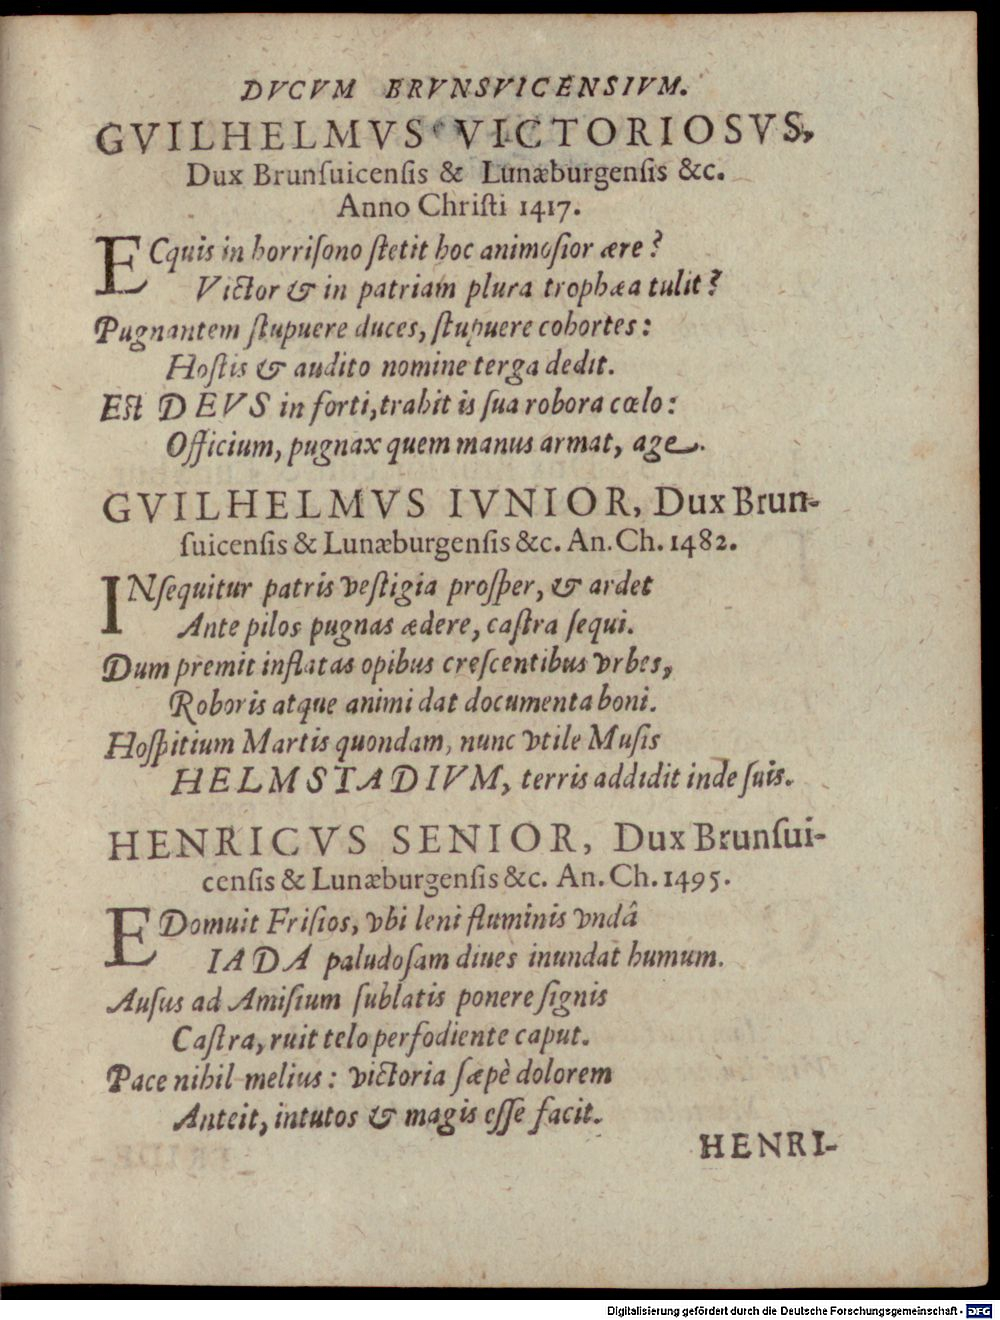 DVCVM BRVNSVICENSIVM.
GVILHELMVS VICTORIOSVS,
Dux Brunſuicenſis & Lunæburgenſis &c.
Anno Chriſti 1417.
ECquis in horriſono ſtetit hoc animoſior ære?
Victor & in patriam plura trophæa tulit?
Pugnantem ſtupuere duces, ſtupuere cohortes:
Hoſtis & audito nomine terga dedit.
Eſt DEVS in forti, trahit is ſua robora cœlo:
Officium, pugnax quem manus armat, age.
GVILHELMVS IVNIOR, Dux Brun-
ſuicenſis & Lunæburgenſis &c. An. Ch. 1482.
INſequitur patris veſtigia proſper, & ardet
Ante pilos pugnas ædere, caſtra ſequi.
Dum premit inflatas opibus creſcentibus vrbes,
Roboris atque animi dat documenta boni.
Hoſpitium Martis quondam, nunc vtile Muſis
HELMSTADIVM, terris addidit inde ſuis.
HENRICVS SENIOR, Dux Brunſui-
cenſis & Lunæburgenſis &c. An. Ch. 1495.
EDomuit Friſios, vbi leni fluminis vndâ
IADA paludoſam diues inundat humum.
Auſus ad Amiſium ſublatis ponere ſignis
Caſtra, ruit telo perfodiente caput.
Pace nihil melius: victoria ſæpè dolorem
Anteit, intutos & magis eſſe facit.
HENRI-
Digitalisierung gefördert durch die Deutsche Forschungsgemeinschaft - DFG